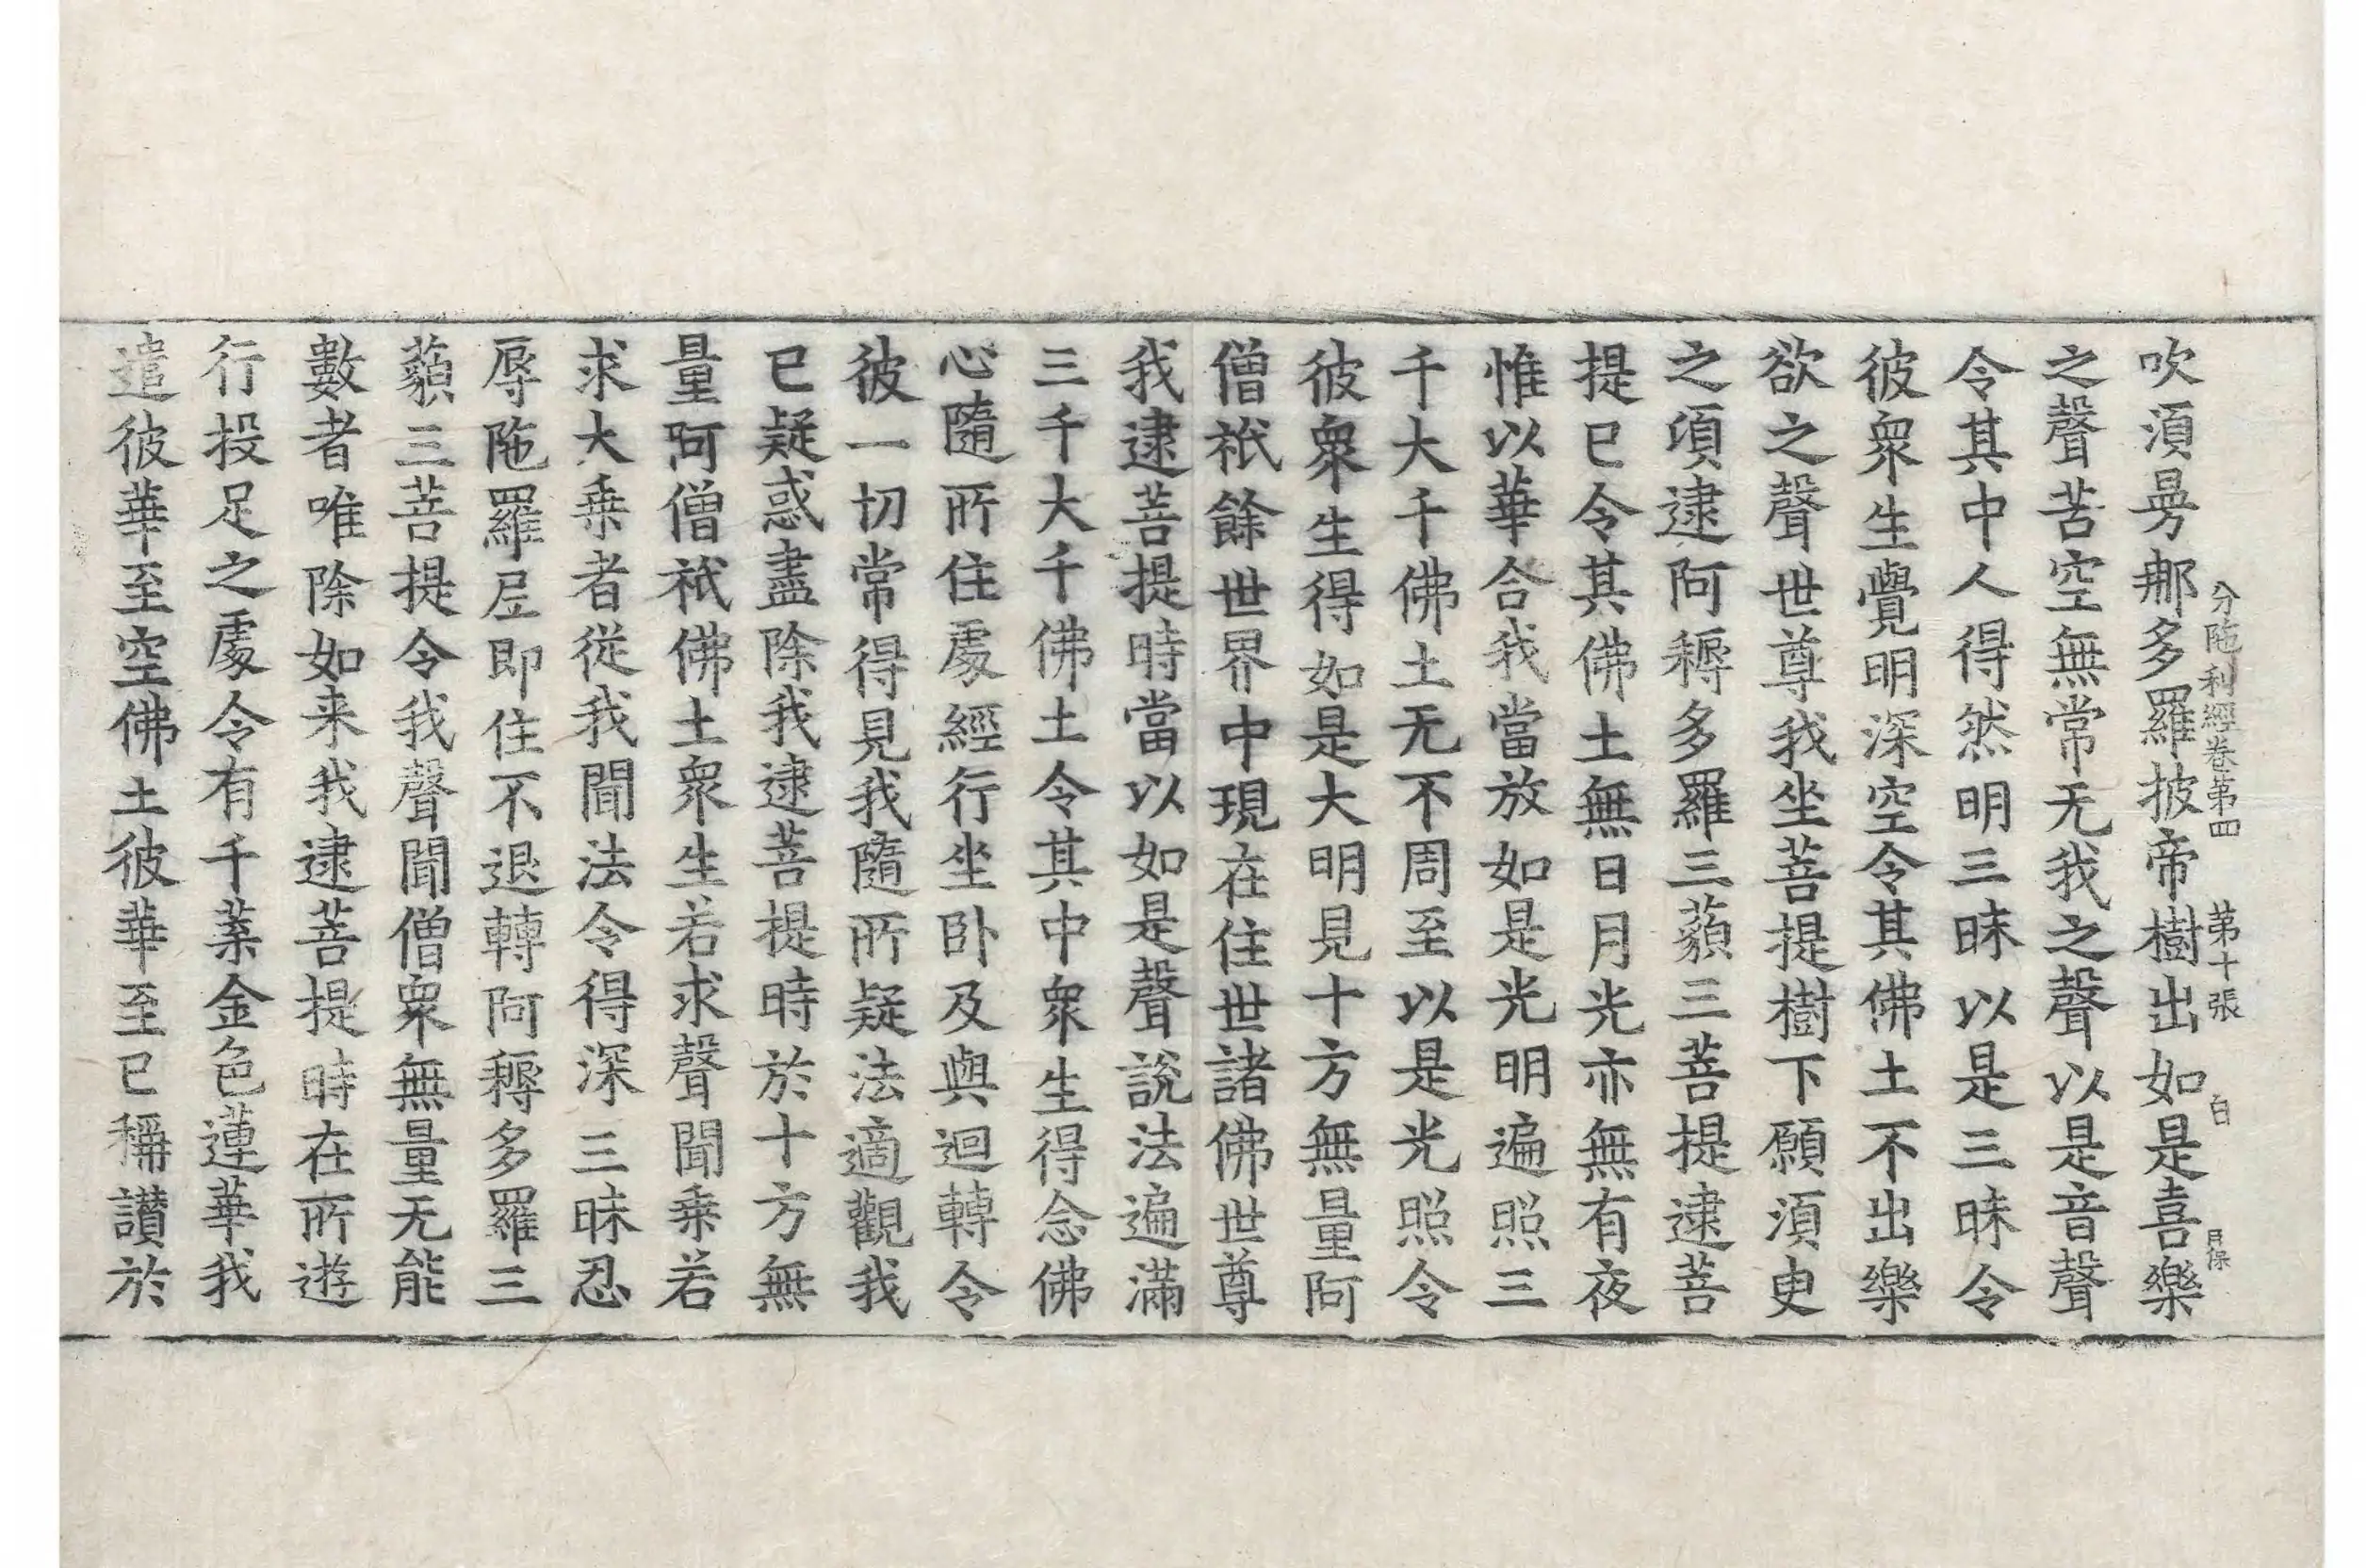 分陁利經卷第四　第十張　白　月保
吹湏曼那多羅披帝樹出如是喜樂
之聲苦空無常无我之聲以是音聲
令其中人得然明三昧以是三昧令
彼衆生覺明深空令其佛土不出樂
欲之聲世尊我坐菩提樹下願湏臾
之項逮阿耨多羅三藐三菩提逮菩
提已令其佛土無日月光亦無有夜
惟以華合我當放如是光明遍照三
千大千佛土无不周至以是光照令
彼衆生得如是大明見十方無量阿
僧祇餘世界中現在住世諸佛世尊
我逮菩提時當以如是聲說法遍滿
三千大千佛土令其中衆生得念佛
心隨所住處經行坐卧及與迴轉令
彼一切常得見我隨所疑法適觀我
已疑惑盡除我逮菩提時於十方無
量阿僧祇佛土衆生若求聲聞乗若
求大乗者從我聞法令得深三昧忍
辱陁羅尼即住不退轉阿耨多羅三
藐三菩提令我聲聞僧衆無量无能
數者唯除如来我逮菩提時在所遊
行投足之處令有千葉金色蓮華我
遣彼華至空佛土彼華至已稱讃於